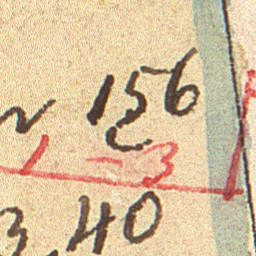 156
1 - 3
3,40